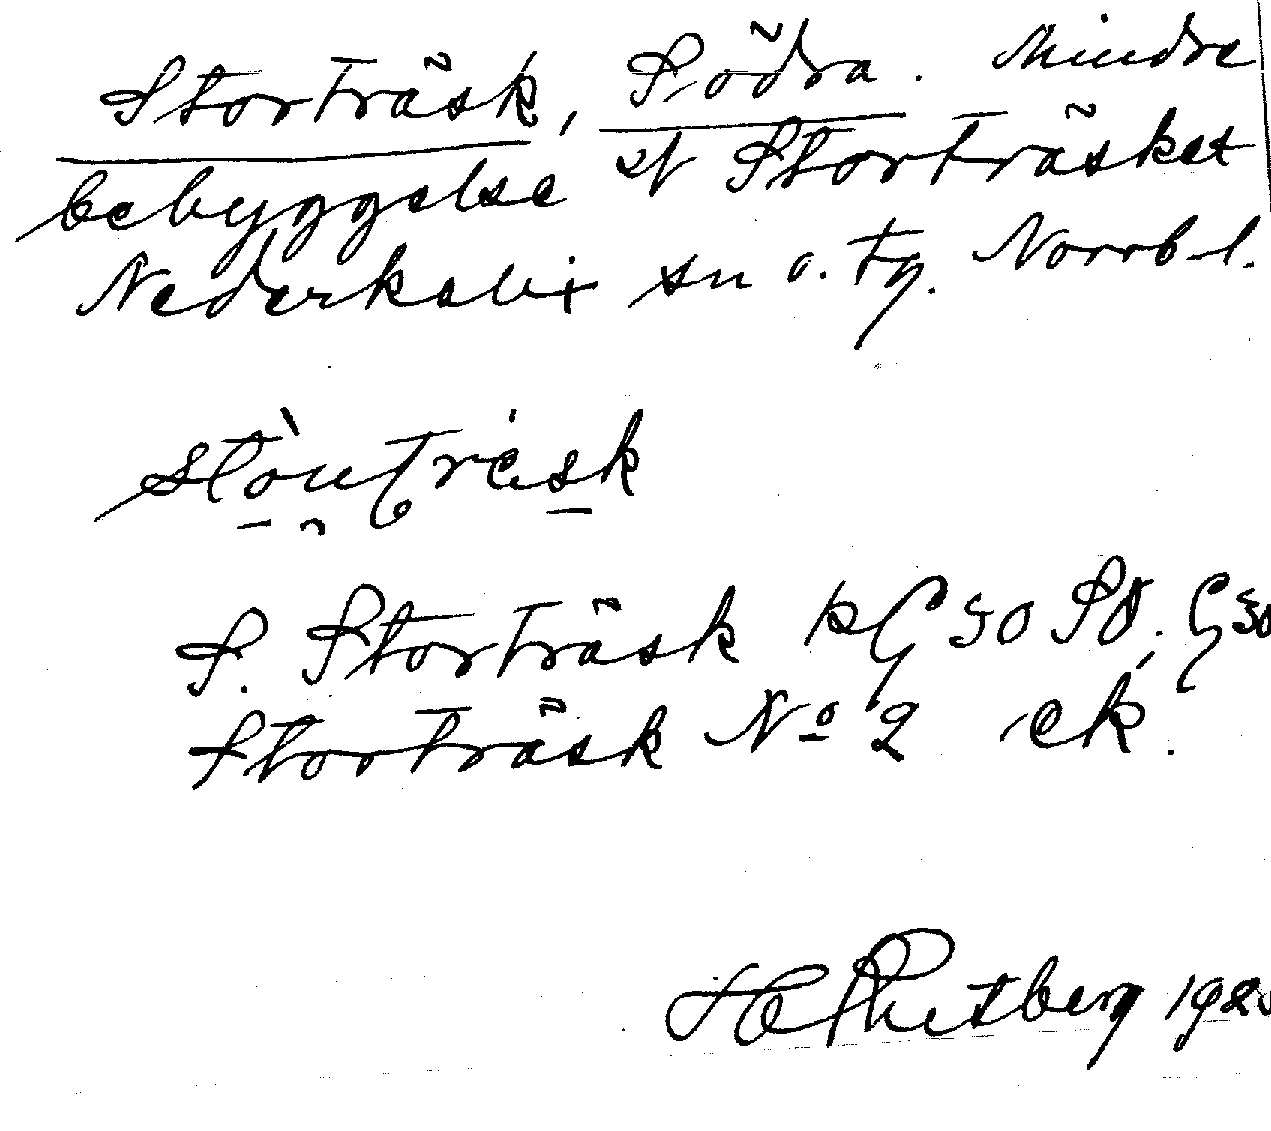 Storträsk, Södra. Mindre
bebyggelse vt Storträsket
Nederkalix sn o. tg. Norrb l.
S. Storträsk kG 50 SO. G 50
Storträsk No 2 ek.
192